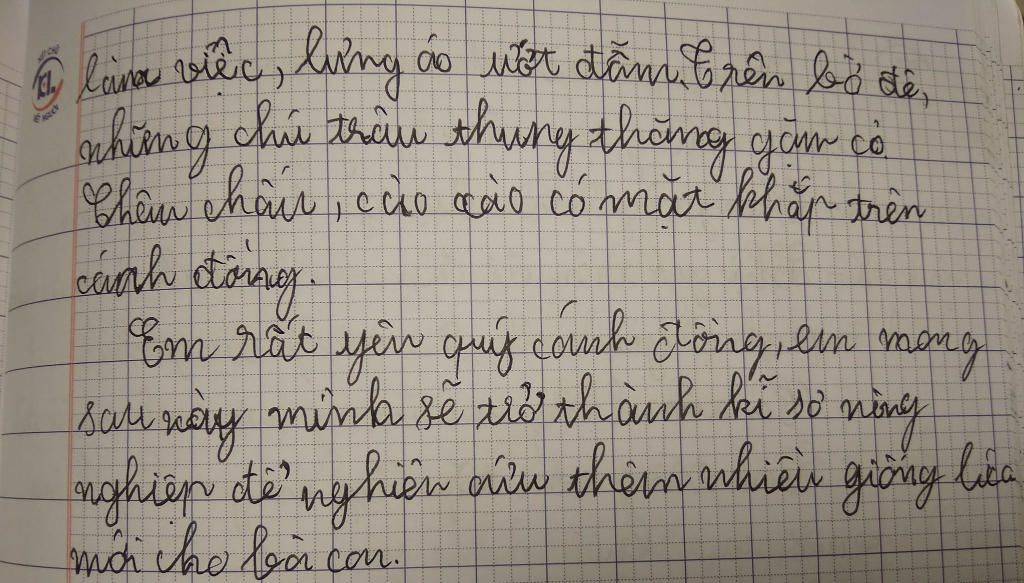 làm việc, lưng áo ướt đẫm. Trên bờ đê,
những chú trâu thung thăng gặm cỏ.
Châu chấu, cào cào có mặt khắp trên
cánh đồng.
Em rất yêu quý cánh đồng, em mong
sau này mình sẽ trở thành kĩ sư nông
nghiệp để nghiên cứu thêm nhiều giống lúa
mới cho bà con.